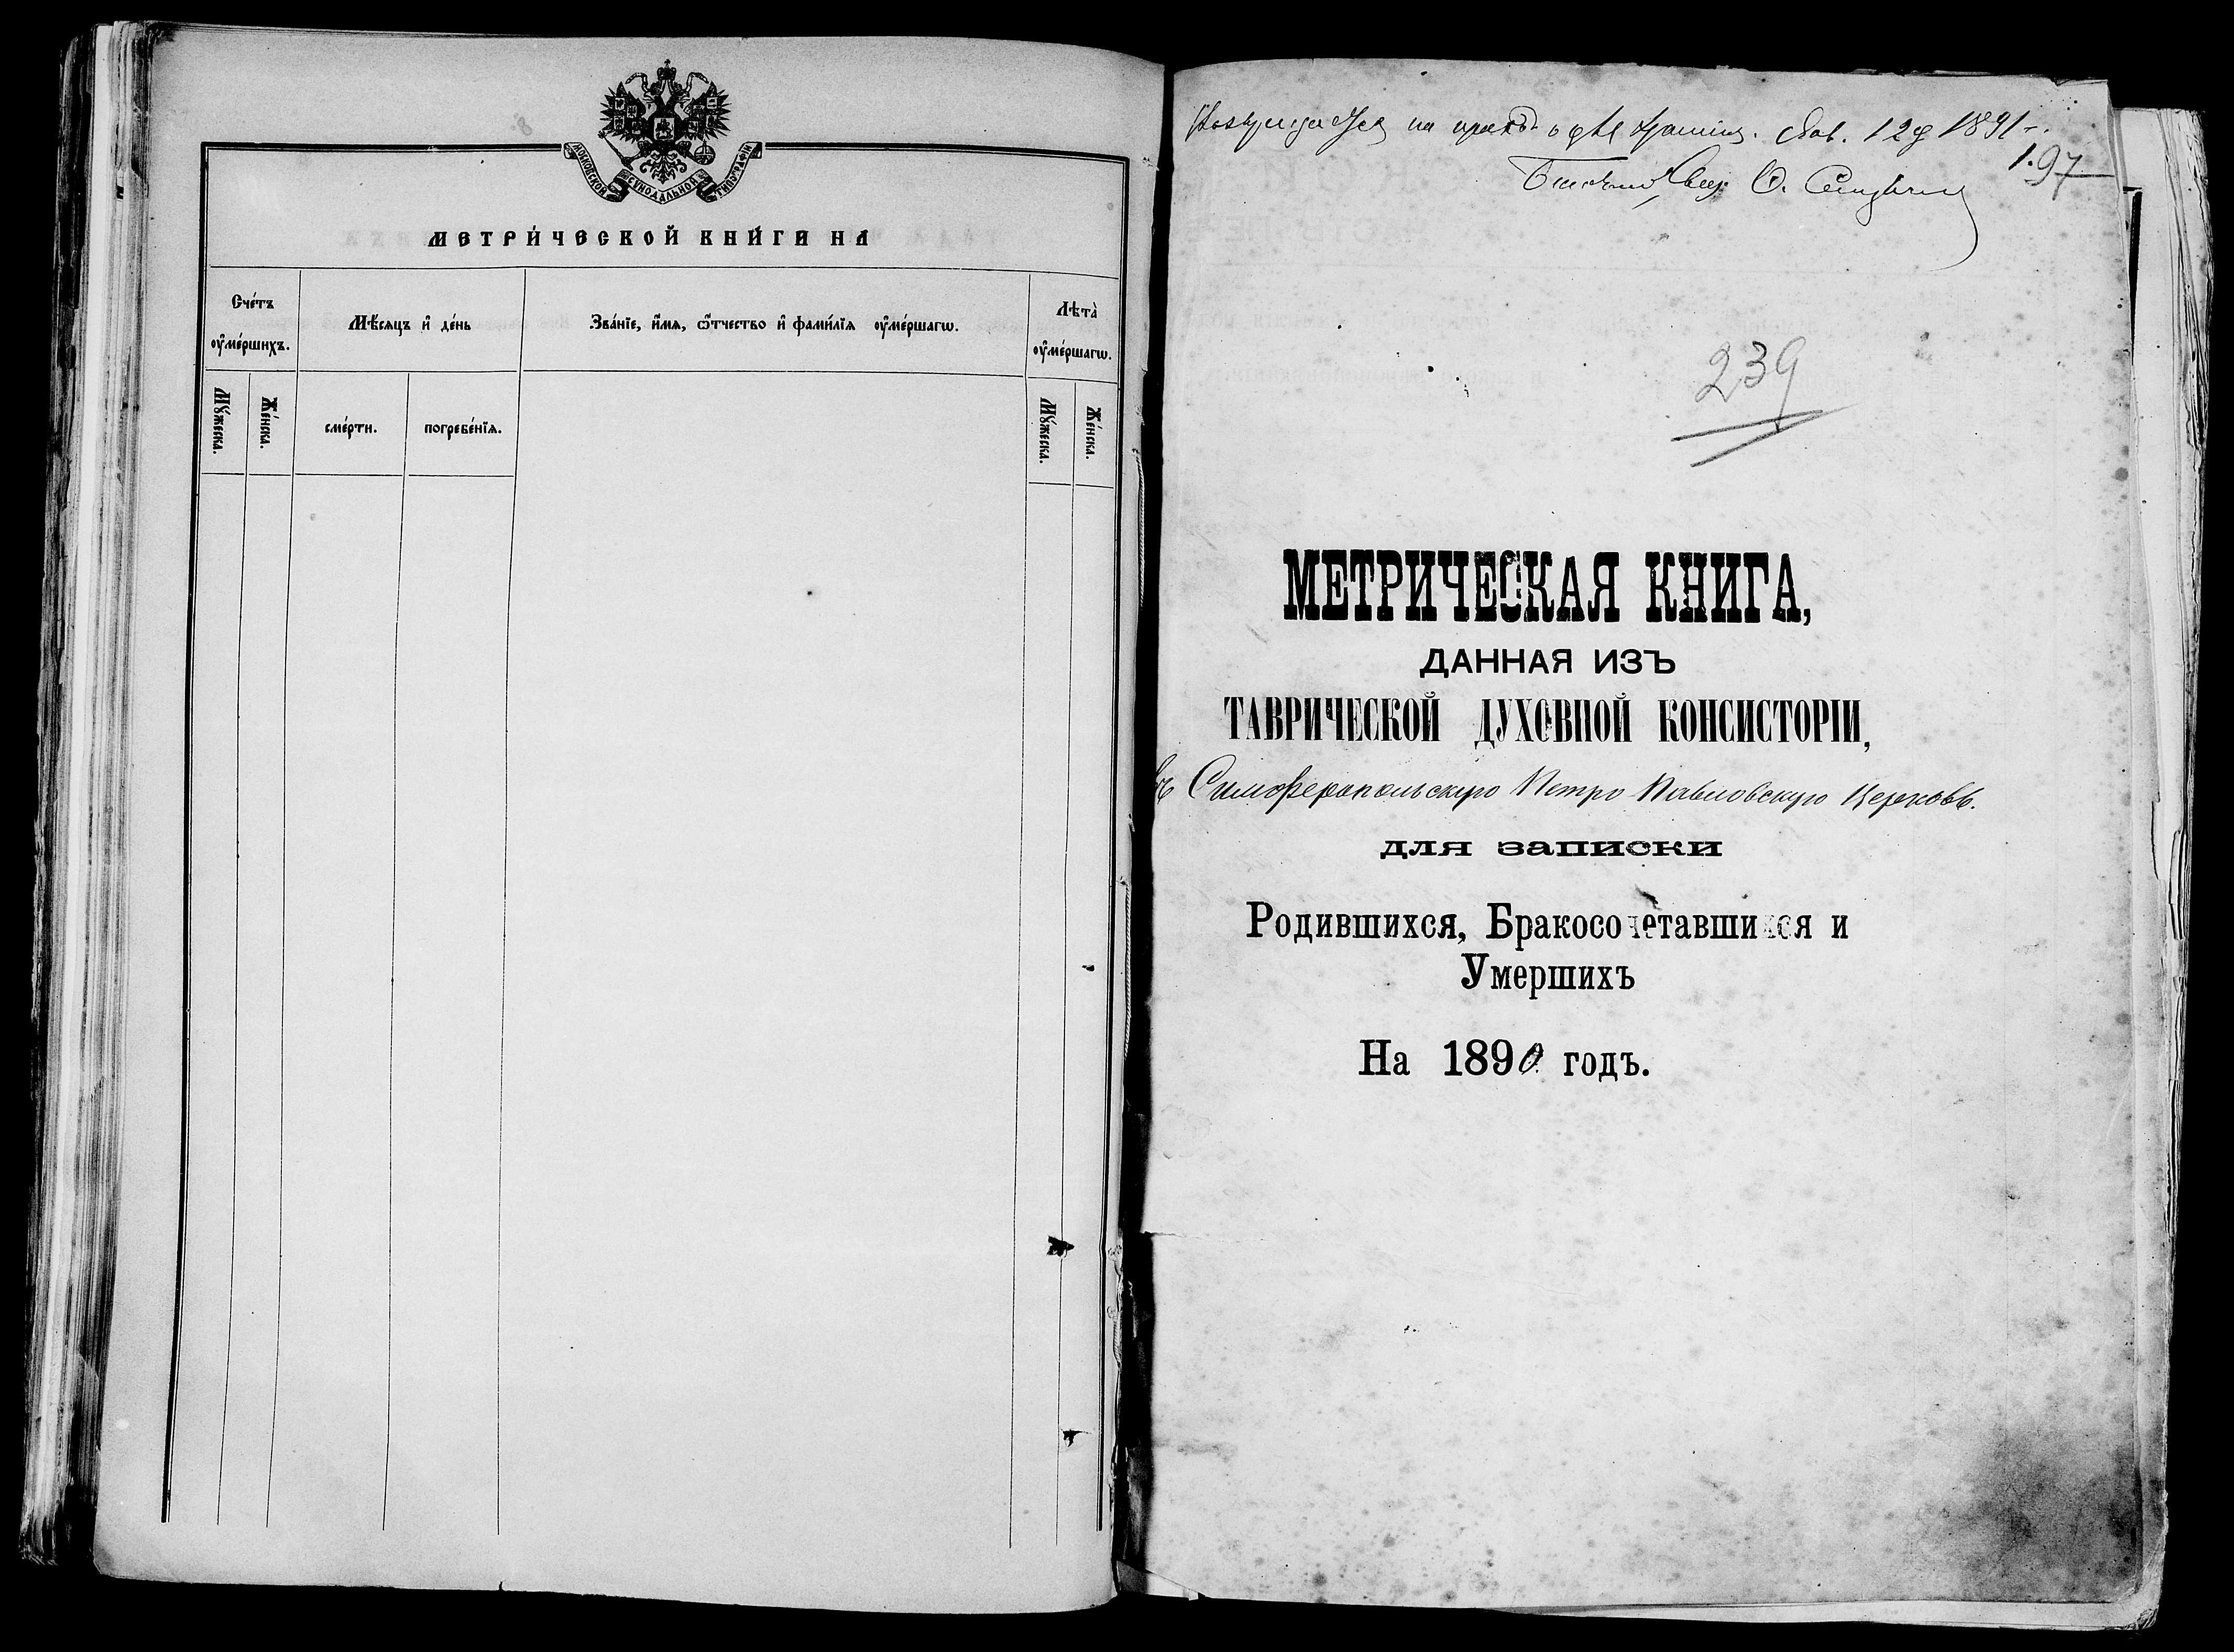 МОСКОВСКОЙ СѴНОДАЛЬНОЙ ТИПОГРАФІИ
МЕТРИ́ЧЕСКОЙ КНИ́ГИ НА
Сче́тъ
оу҆ме́ршихъ.
Мѣ́сяцъ и҆ де́нь
Зва́нїе, и҆́мя, ѻ҆́тчество и҆ фами́лїя оу҆ме́ршагѡ.
Лѣта̀
оу҆ме́ршагѡ.
Мꙋ́жеска.
Же́нска.
сме́рти.
погребе́нїя.
Мꙋ́жеска.
Же́нска.
на храненіе. 12 1891
197
239
МЕТРИЧЕСКАЯ КНИГА,
ДАННАЯ ИЗЪ
ТАВРИЧЕСКОЙ ДУХОВНОЙ КОНСИСТОРІИ,
въ Симферопольскую Петро Павловскую Церковь.
для записки
Родившихся, Бракосочетавшихся и
Умершихъ
На 1890 годъ.